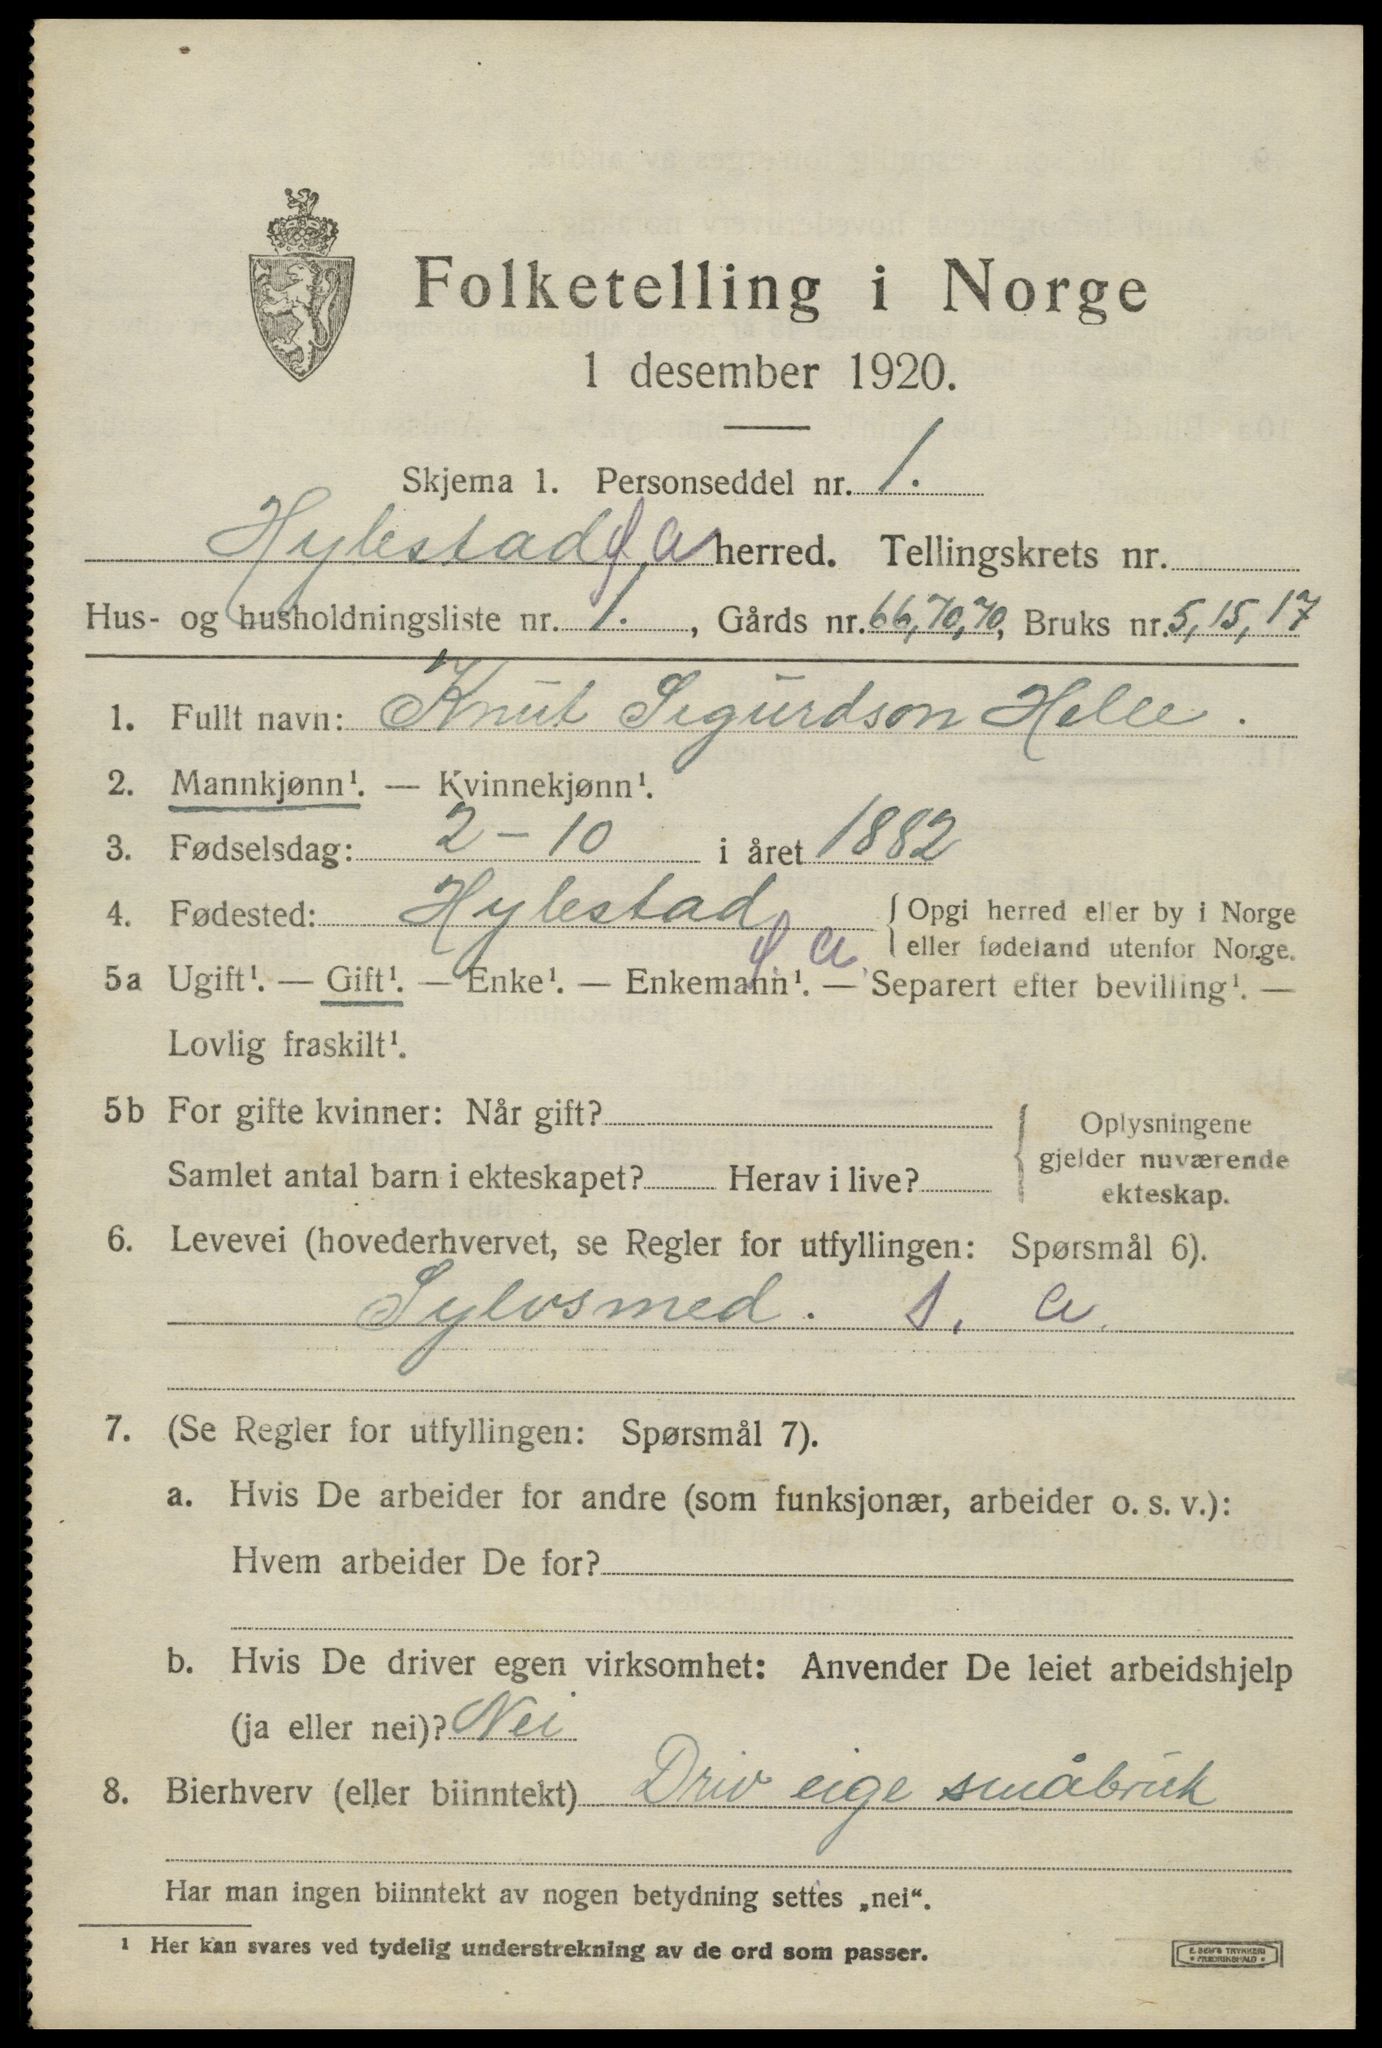 Folketelling i Norge
1 desember 1920.
Skjema 1. Personseddel nr. 1.
Hylestad herred. Tellingskrets nr.
Hus- og husholdningsliste nr. 1., Gårds nr. 66, 70, 70, Bruks nr. 5, 15, 17
1. Fullt navn: Knut Sigurdson Helle.
2. Mannkjønn¹. — Kvinnekjønn¹.
3. Fødselsdag: 2 - 10 i året 1882
4. Fødested: Hylestad { Opgi herred eller by i Norge
eller fødeland utenfor Norge.
5a Ugift¹. — Gift¹. — Enke¹. — Enkemann¹. — Separert efter bevilling¹. —
Lovlig fraskilt¹.
5b For gifte kvinner: Når gift?
Samlet antal barn i ekteskapet? Herav i live?
{ Oplysningene
gjelder nuværende
ekteskap.
6. Levevei (hovederhvervet, se Regler for utfyllingen: Spørsmål 6).
Sylvsmed. s. a.
7. (Se Regler for utfyllingen: Spørsmål 7).
a. Hvis De arbeider for andre (som funksjonær, arbeider o. s. v.):
Hvem arbeider De for?
b. Hvis De driver egen virksomhet: Anvender De leiet arbeidshjelp
(ja eller nei)? Nei
8. Bierhverv (eller biinntekt) Driv eige småbruk
Har man ingen biinntekt av nogen betydning settes „nei“.
¹ Her kan svares ved tydelig understrekning av de ord som passer.
E. SEM'S TRYKKERI
* FREDRIKSHALD *